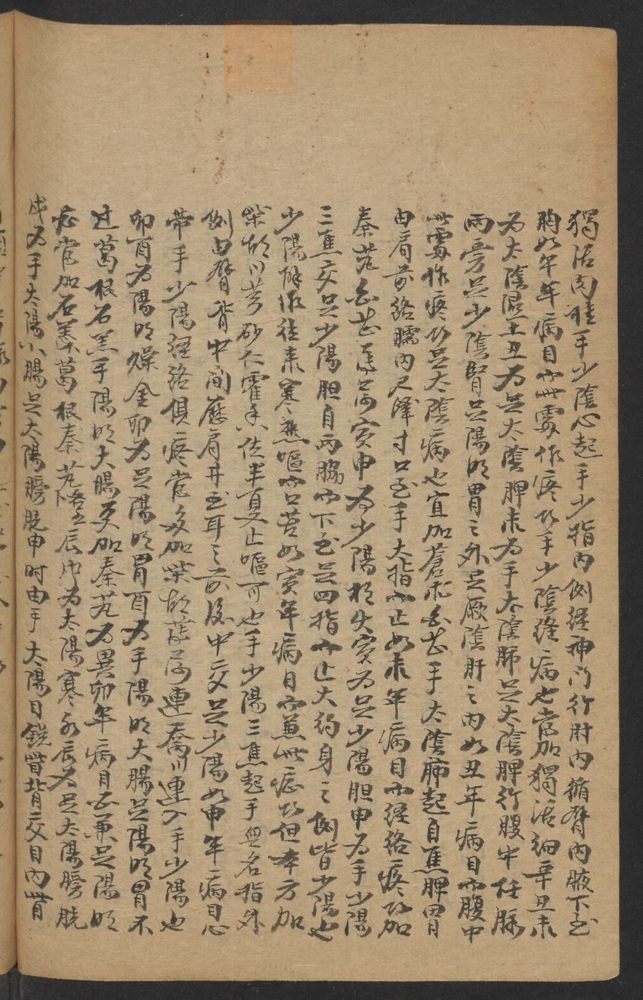 獨活肉桂手少陰心起手少指內側經神門行肘內循臂內腋下至
胸如午年病目而無霧作疼故手少陰經病也當加獨活細辛丑未
為太陰濕土丑為足太陰脾未為手太陰肺足太陰脾行腹中任脉
兩旁足少陰腎足陽明胃之外足厥陰肝之內如丑年病目而腹中
無霧作疼故足太陰病也宜加蒼朮白芷手太陰肺起自焦脾胃
由肩前絡臑內尺澤寸口至手大指而止如未年病目而經絡疼故加
秦艽白芷薄荷寅申為少陽相火寅為足少陽胆申為手少陽
三焦交足少陽胆自兩脇而下至足四指而止大約身之側皆少陽也
少陽解作往來寒熱嘔而口苦如寅年病目而兼此症故但本方加
柴胡川芎砂仁霍香佐半夏止嘔可也手少陽三焦起手無名指外
側由臂背中間應肩井至耳之前後中交足少陽如申年病目心
帶手少陽經絡俱疼當多加柴胡薄荷連喬川連入手少陽也
卯酉為陽明燥金卯為足陽明胃酉為手陽明大腸足陽明胃不
过葛根石羔手陽明大腸更加秦艽為異卯年病目而兼足陽明
症當加石羔葛根秦艽辰戌為太陽寒水辰為足太陽膀胱
戌為手太陽小腸足太陽膀胱申時由手太陽目銳眥背交目內眥